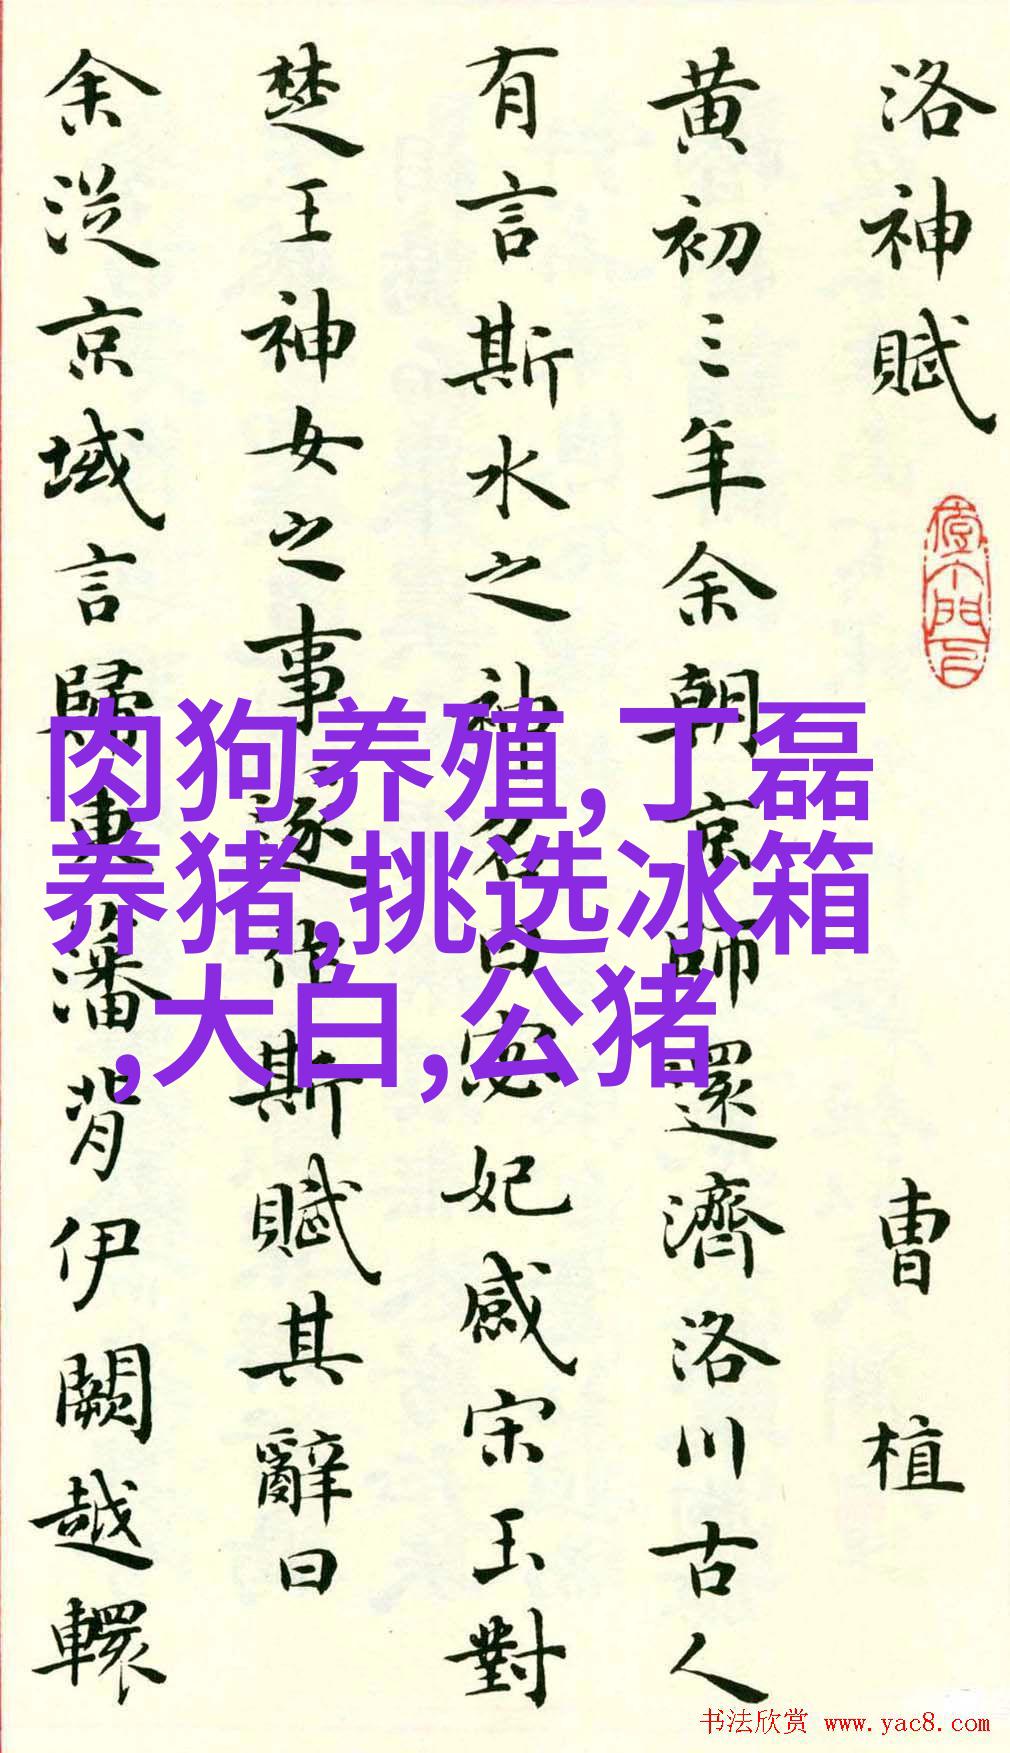 洛神賦
曹植
黄初三年余朝京師還濟洛川古人
有言斯水之神名曰宓妃感宋玉對
楚王神女之事遂作斯賦其辭曰
余從京域言歸東藩背伊闕越轘
肉狗养殖,丁磊
养猪,挑选冰箱
,大白,公猪
书法欣赏 www.yac8.com